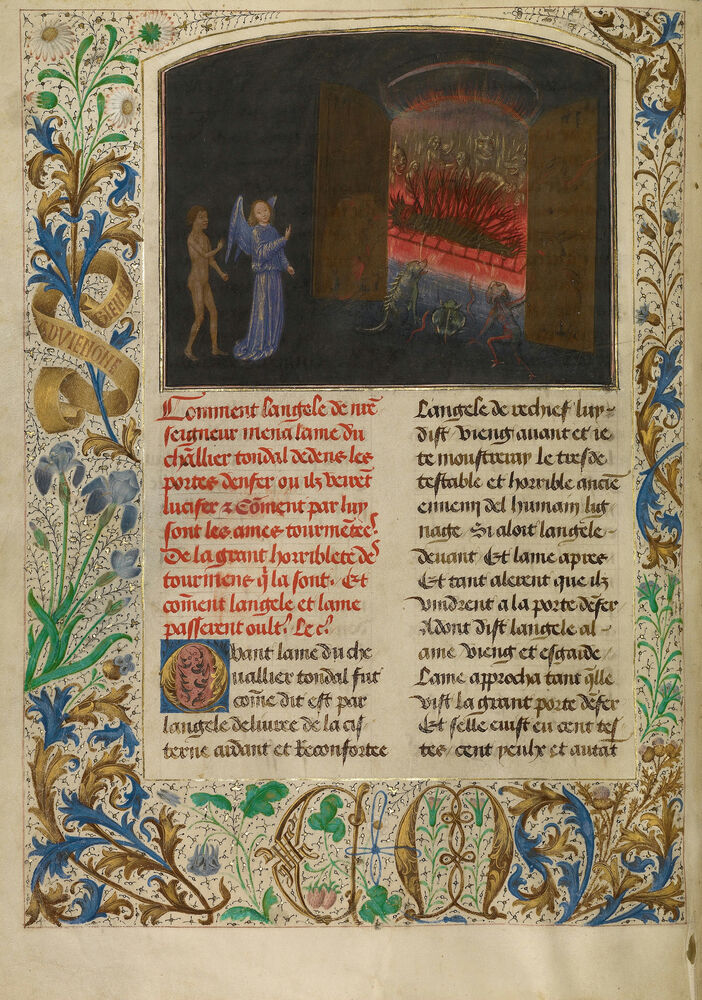 BIEN
ADVIENGNE
Comment langele de nr̄e
seigneur mena lame du
chl̄lier tondal dedens les
portes denfer ou ilz veirēt
lucifer ⁊ Cōment par luy
sont les ames tourmētees
De la grant horriblete des
tourmens q̄ la sont. Et
coment langele et lame
passerent oultˀ. Le cˀ.
Quant lame du che
uallier tondal fut
cōme dit est par
langele deliuree de la cis
terne ardant et Reconfortee
Langele de rechief luy
dist vieng auant et ie
te monstreray le tresde
testable et horrible anciē
ennemy del humain lig
nage. Si aloit langele
deuant Et lame apres
Et tant alerent que ilz
vindrent a la porte dēfer
Adont dist langele al
ame vieng et esgarde
Lame approcha tant q̄lle
vist la grant porte dēfer
Et selle euist eu cent tes
tes / cent yeulx et autāt
C M